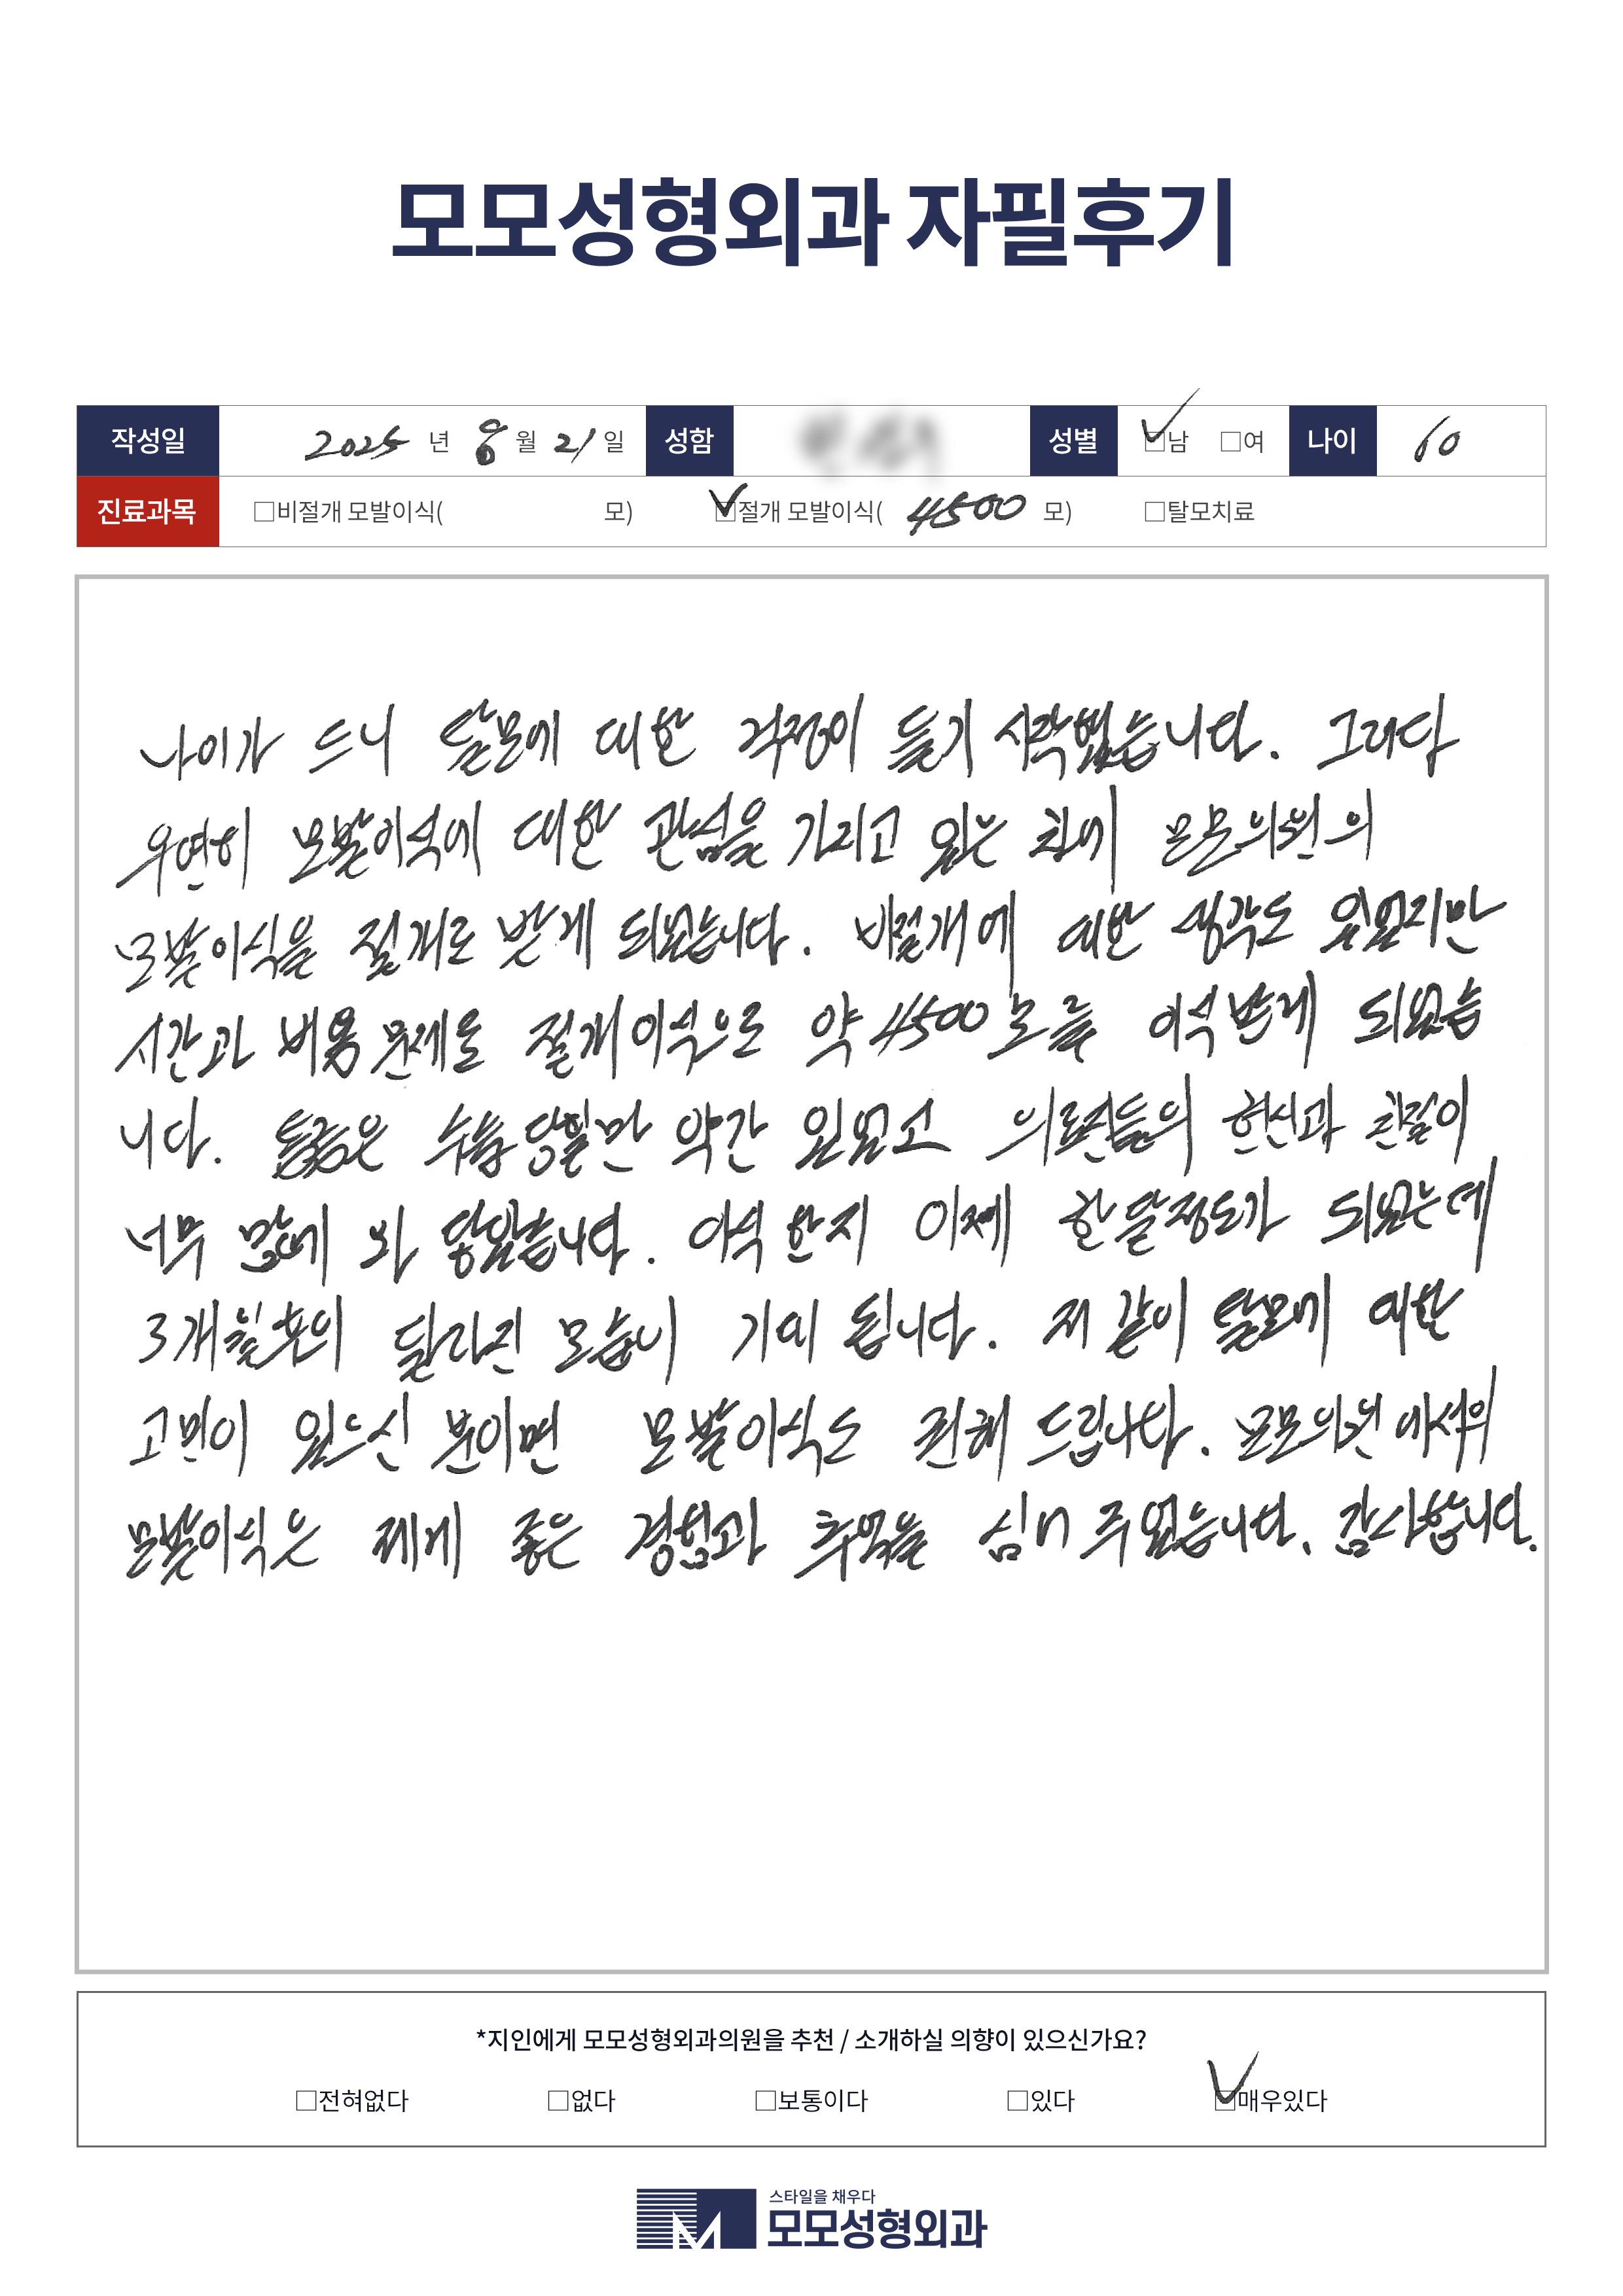 모모성형외과 자필후기
작성일 2025 년 8 월 21 일 성함 성별 ☑남 □여 나이 60
진료과목 □비절개 모발이식( 모) ☑절개 모발이식( 4500 모) □탈모치료
나이가 드니 탈모에 대한 걱정이 들기 시작했습니다. 그러다
우연히 모발이식에 대한 관심을 가지고 있는 차에 모모의원의
모발이식을 절개로 받게 되었습니다. 비절개에 대한 생각도 있었지만
시간과 비용 문제로 절개이식으로 약 4500모를 이식받게 되었습
니다. 통증은 수술당일만 약간 있었고 의료진들의 헌신과 친절이
너무 많에 와 닿았습니다. 이식한지 이제 한달정도가 되었는데
3개월후의 달라진 모습이 기대 됩니다. 저 같이 탈모에 대한
고민이 있으신 분이면 모발이식도 권해 드립니다. 모모의원에서의
모발이식은 제게 좋은 경험과 추억을 심어 주었습니다. 감사합니다.
*지인에게 모모성형외과의원을 추천 / 소개하실 의향이 있으신가요?
□전혀없다 □없다 □보통이다 □있다 ☑매우있다
스타일을 채우다
모모성형외과